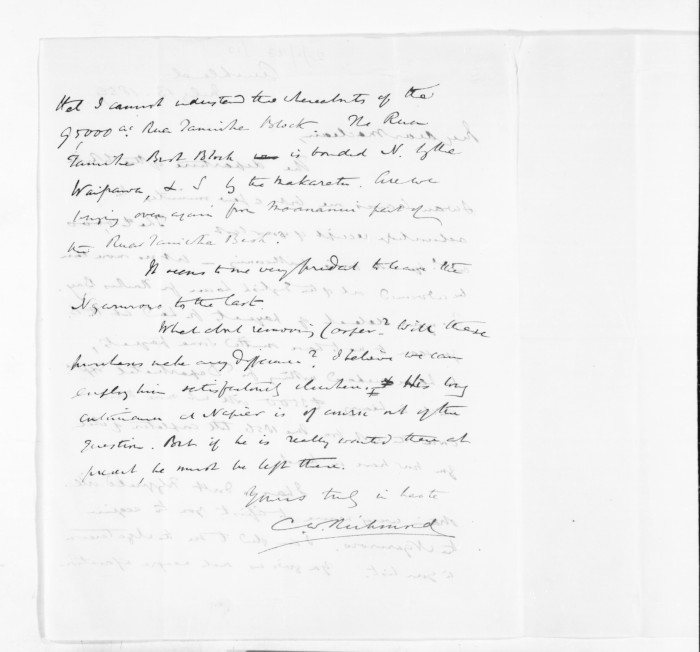 that I cannot understand the whereabouts of the
95000 ac Rua Taniwha Block. The Rua
Taniwha Bush Block is bounded N. by the
Waipawa, & S by the Makaretu. Are we
buying over again from Moananui part of
the Rua Taniwha Bush.
It seems to me very prudent to leave the
to the last.
What about removing Cooper? Will these
purchases make any difference? I believe we can
employ him satisfactorily elsewhere, & His long
continuance at Napier is of course out of the
question. But if he is really wanted there at
present he must be left there.
Yours truly in haste
C W Richmond